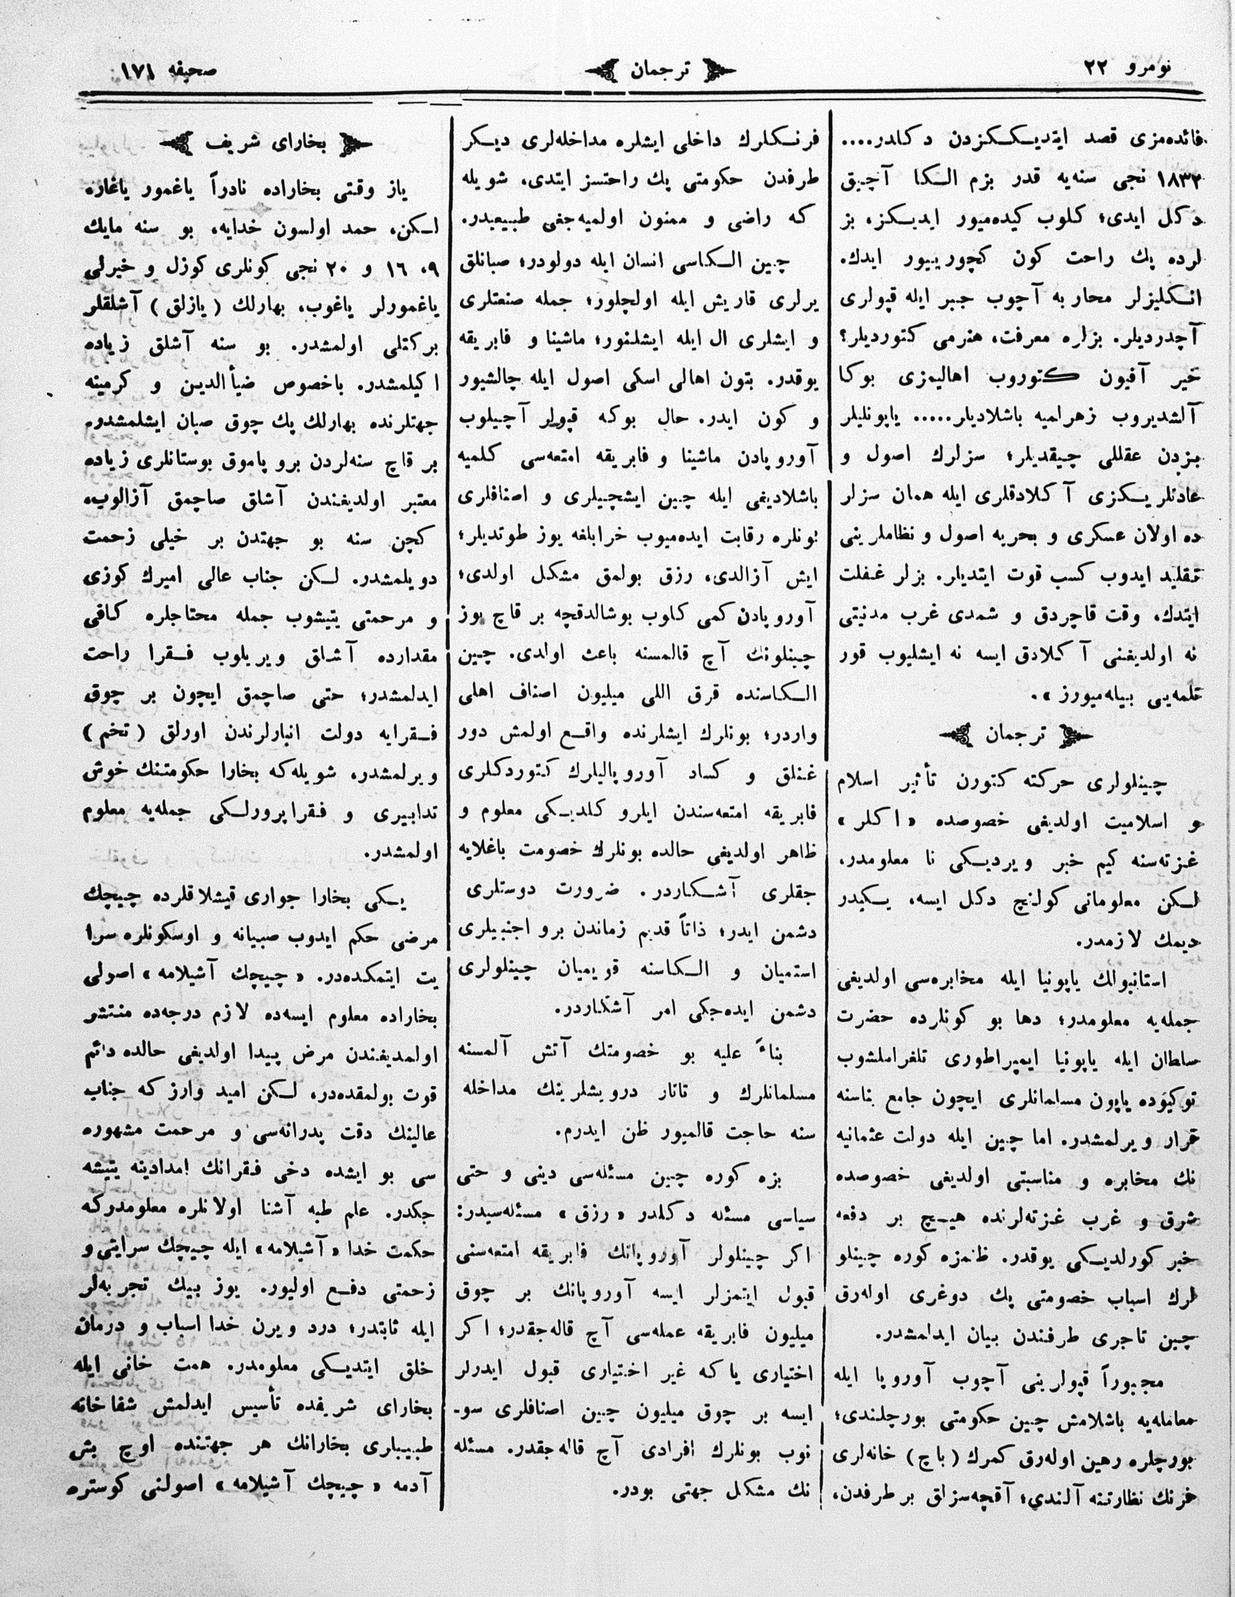 نومرو ٢٢
ترجمان
صحیفه ١٧١
فائده‌مزی قصد ایتدیککزدن دکلدر....
١٨٣٢ نجی سنه‌یه قدر بزم الکا آچیق
دکل ایدی؛ کلوب کیده‌میور ایدیکز، بز
لرده پك راحت کون کچوریپور ایدك.
انکلیزلر محاربه آچوب جبر ایله قپولری
آچدردیلر. بزلره معرفت، هنرمی کتوردیلر؟
خیر آفیون کتوروب اهالیمزی بوکا
آلشدیروب زهرلمیه باشلادیلر..... یاپونلیلر
بزدن عقللی چیقدیلر؛ سزلرك اصول و
عادتلریکزی آکلادقلری ایله همان سزلر
ده اولان عسکری و بحریه اصول و نظاملرینی
تقلید ایدوب کسب قوت ایتدیلر. بزلر غفلت
ایتدك، وقت قاچردق و شمدی غرب مدنیتی
نه اولدیغنی آکلادق ایسه نه ایشلیوب قور
تلمه‌یی بیله‌میورز».
ترجمان
چینلولری حرکته کتورن تأثیر اسلام
و اسلامیت اولدیغی خصوصده «اکلر»
غزته‌سنه کیم خبر ویردیکی نا معلومدر.
لکن معلوماتی کولنچ دکل ایسه، یکیدر
دیمك لازمدر.
استانبولك یاپونیا ایله مخابره‌سی اولدیغی
جمله‌یه معلومدر؛ دها بو کونلرده حضرت
سلطان ایله یاپونیا ایمپراطوری تلغراملشوب
توکیوده یاپون مسلمانلری ایچون جامع بناسنه
قرار ویرلمشدر. اما چین ایله دولت عثمانیه
نك مخابره و مناسبتی اولدیغی خصوصده
شرق و غرب غزته‌لرنده هیچ بر دفعه
خبر کورلدیکی یوقدر. ظنمزه کوره چینلو
لرك اسباب خصومتی پك دوغری اوله‌رق
چین تاجری طرفندن بیان ایدلمشدر.
مجبوراً قپولرینی آچوب آوروپا ایله
معامله‌یه باشلامش چین حکومتی بورچلندی؛
بورچلره رهین اوله‌رق کمرك (باج) خانه‌لری
فرنك نظارتنه آلندی؛ آقچه‌سزلق بر طرفدن،
فرنکلرك داخلی ایشلره مداخله‌لری دیکر
طرفدن حکومتی پك راحتسز ایتدی، شویله
که راضی و ممنون اولمیه‌جغی طبیعیدر.
چین الکاسی انسان ایله دولودر؛ صبانلق
یرلری قاریش ایله اولچلور؛ جمله صنعتلری
و ایشلری ال ایله ایشلنور؛ ماشینا و فابریقه
یوقدر. بتون اهالی اسکی اصول ایله چالشیور
و کون ایدر. حال بوکه قپولر آچیلوب
آوروپادن ماشینا و فابریقه امتعه‌سی کلمیه
باشلادیغی ایله چین ایشچیلری و اصنافلری
بونلره رقابت ایده‌میوب خرابلغه یوز طوتدیلر؛
ایش آزالدی، رزق بولمق مشکل اولدی؛
آوروپادن کمی کلوب بوشالدقچه بر قاچ یوز
چینلونك آچ قالمسنه باعث اولدی. چین
الکاسنده قرق اللی میلیون اصناف اهلی
واردر؛ بونلرك ایشلرنده واقع اولمش دور
غنلق و کساد آوروپالیلرك کتوردکلری
فابریقه امتعه‌سندن ایلرو کلدیکی معلوم و
ظاهر اولدیغی حالده بونلرك خصومت باغلایه
جقلری آشکاردر. ضرورت دوستلری
دشمن ایدر؛ ذاتاً قدیم زماندن برو اجنبیلری
استمیان و الکاسنه قویمیان چینلولری
دشمن ایده‌جکی امر آشکاردر.
بناءً علیه بو خصومتك آتش آلمسنه
مسلمانلرك و تاتار درویشلرینك مداخله
سنه حاجت قالمیور ظن ایدرم.
بزه کوره چین مسئله‌سی دینی و حتی
سیاسی مسئله دکلدر «رزق» مسئله‌سیدر:
اکر چینلولر آوروپانك فابریقه امتعه‌سنی
قبول ایتمزلر ایسه آوروپانك بر چوق
میلیون فابریقه عمله‌سی آچ قاله‌جقدر؛ اکر
اختیاری یا که غیر اختیاری قبول ایدرلر
ایسه بر چوق میلیون چین اصنافلری سو-
نوب بونلرك افرادی آچ قاله‌جقدر. مسئله
نك مشکل جهتی بودر.
بخارای شریف
یاز وقتی بخاراده نادراً یاغمور یاغاره
لکن، حمد اولسون خدایه، بو سنه مایك
٩، ١٦ و ٢٠ نجی کونلری کوزل و خیرلی
یاغمورلر یاغوب، بهارلك (یازلق) آشلقلر
برکتلی اولمشدر. بو سنه آشلق زیاده
اکیلمشدر. باخصوص ضیأالدین و کرمینه
جهتلرنده بهارلك پك چوق صبان ایشلمشدر.
بر قاچ سنه‌لردن برو پاموق بوستانلری زیاده
معتبر اولدیغندن آشلق صاچمق آزالوب،
کچن سنه بو جهتدن بر خیلی زحمت
دویلمشدر. لکن جناب عالی امیرك کوزی
و مرحمتی یتیشوب جمله محتاجلره کافی
مقدارده آشلق ویریلوب فقرا راحت
ایدلمشدر؛ حتی صاچمق ایچون بر چوق
فقرایه دولت انبارلرندن اورلق (تخم)
ویرلمشدر، شویله‌که بخارا حکومتنك خوش
تدابیری و فقراپرورلکی جمله‌یه معلوم
اولمشدر.
یکی بخارا جواری قیشلاقلرده چیچك
مرضی حکم ایدوب صبیانه و اوسکونلره سرا
یت ایتمکده‌در. «چیچك آشیلامه» اصولی
بخاراده معلوم ایسه‌ده لازم درجه‌ده منتشر
اولمدیغندن مرض پیدا اولدیغی حالده دائم
قوت بولمقده‌در، لکن امید وارز که جناب
عالینك دقت پدرانه‌سی و مرحمت مشهوره
سی بو ایشده دخی فقرانك امدادینه یتیشه
جکدر. علم طبه آشنا اولانلره معلومدرکه
حکمت خدا «آشیلامه» ایله چیچك سرایتی و
زحمتی دفع اولیور. یوز بیك تجربه‌لر
ایله ثابتدر؛ درد ویرن خدا اسباب و درمان
خلق ایتدیکی معلومدر. همت خانی ایله
بخارای شریفده تأسیس ایدلمش شفاخانه
طبیبلری بخارانك هر جهتنده اوچ بش
آدمه «چیچك آشیلامه» اصولنی کوستره